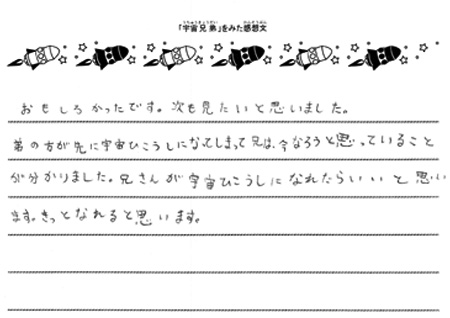 「宇宙兄弟」をみた感想文
おもしろかったです。次も見たいと思いました。
弟の方が先に宇宙ひこうしになってしまって兄は、今なろうと思っていること
が分かりました。兄さんが宇宙ひこうしになれたらいいと思い
ます。きっとなれると思います。